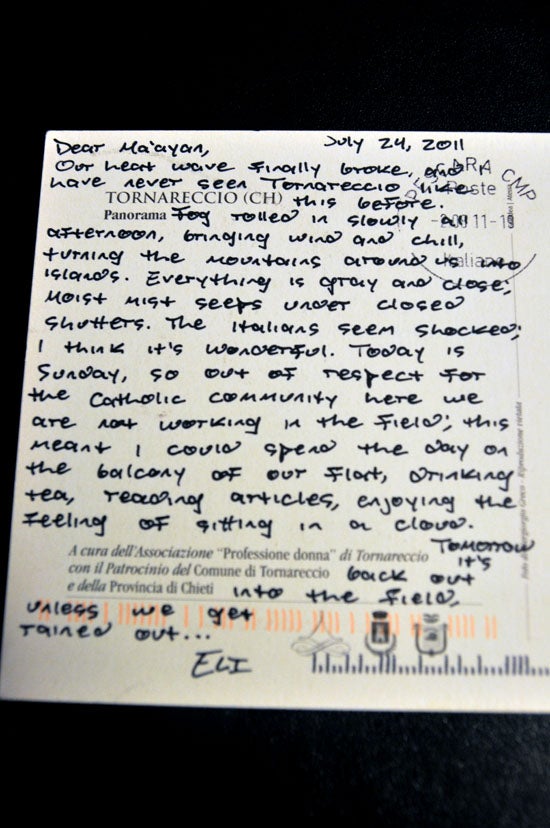 Dear Ma'ayan, July 24, 2011
Our heat wave finally broke, and I
have never seen Tornareccio like
TORNARECCIO (CH) this before.
Panorama Fog rolled in slowly all
afternoon, bringing wind and chill,
turning the mountains around us into
islands. Everything is gray and close;
moist mist seeps under closed
shutters. The Italians seem shocked;
I think it's wonderful. Today is
Sunday, so out of respect for
the Catholic community here we
are not working in the field; this
meant I could spend the day on
the balcony of our flat, drinking
tea, reading articles, enjoying the
feeling of sitting in a cloud.
Tomorrow
A cura dell'Associazione "Professione donna" di Tornareccio it's
con il Patrocinio del Comune di Tornareccio back out
e della Provincia di Chieti into the field,
unless we get
rained out...
ELI
PESCARA CMP
Poste
11-19
Italiane
Riproduzione vietata